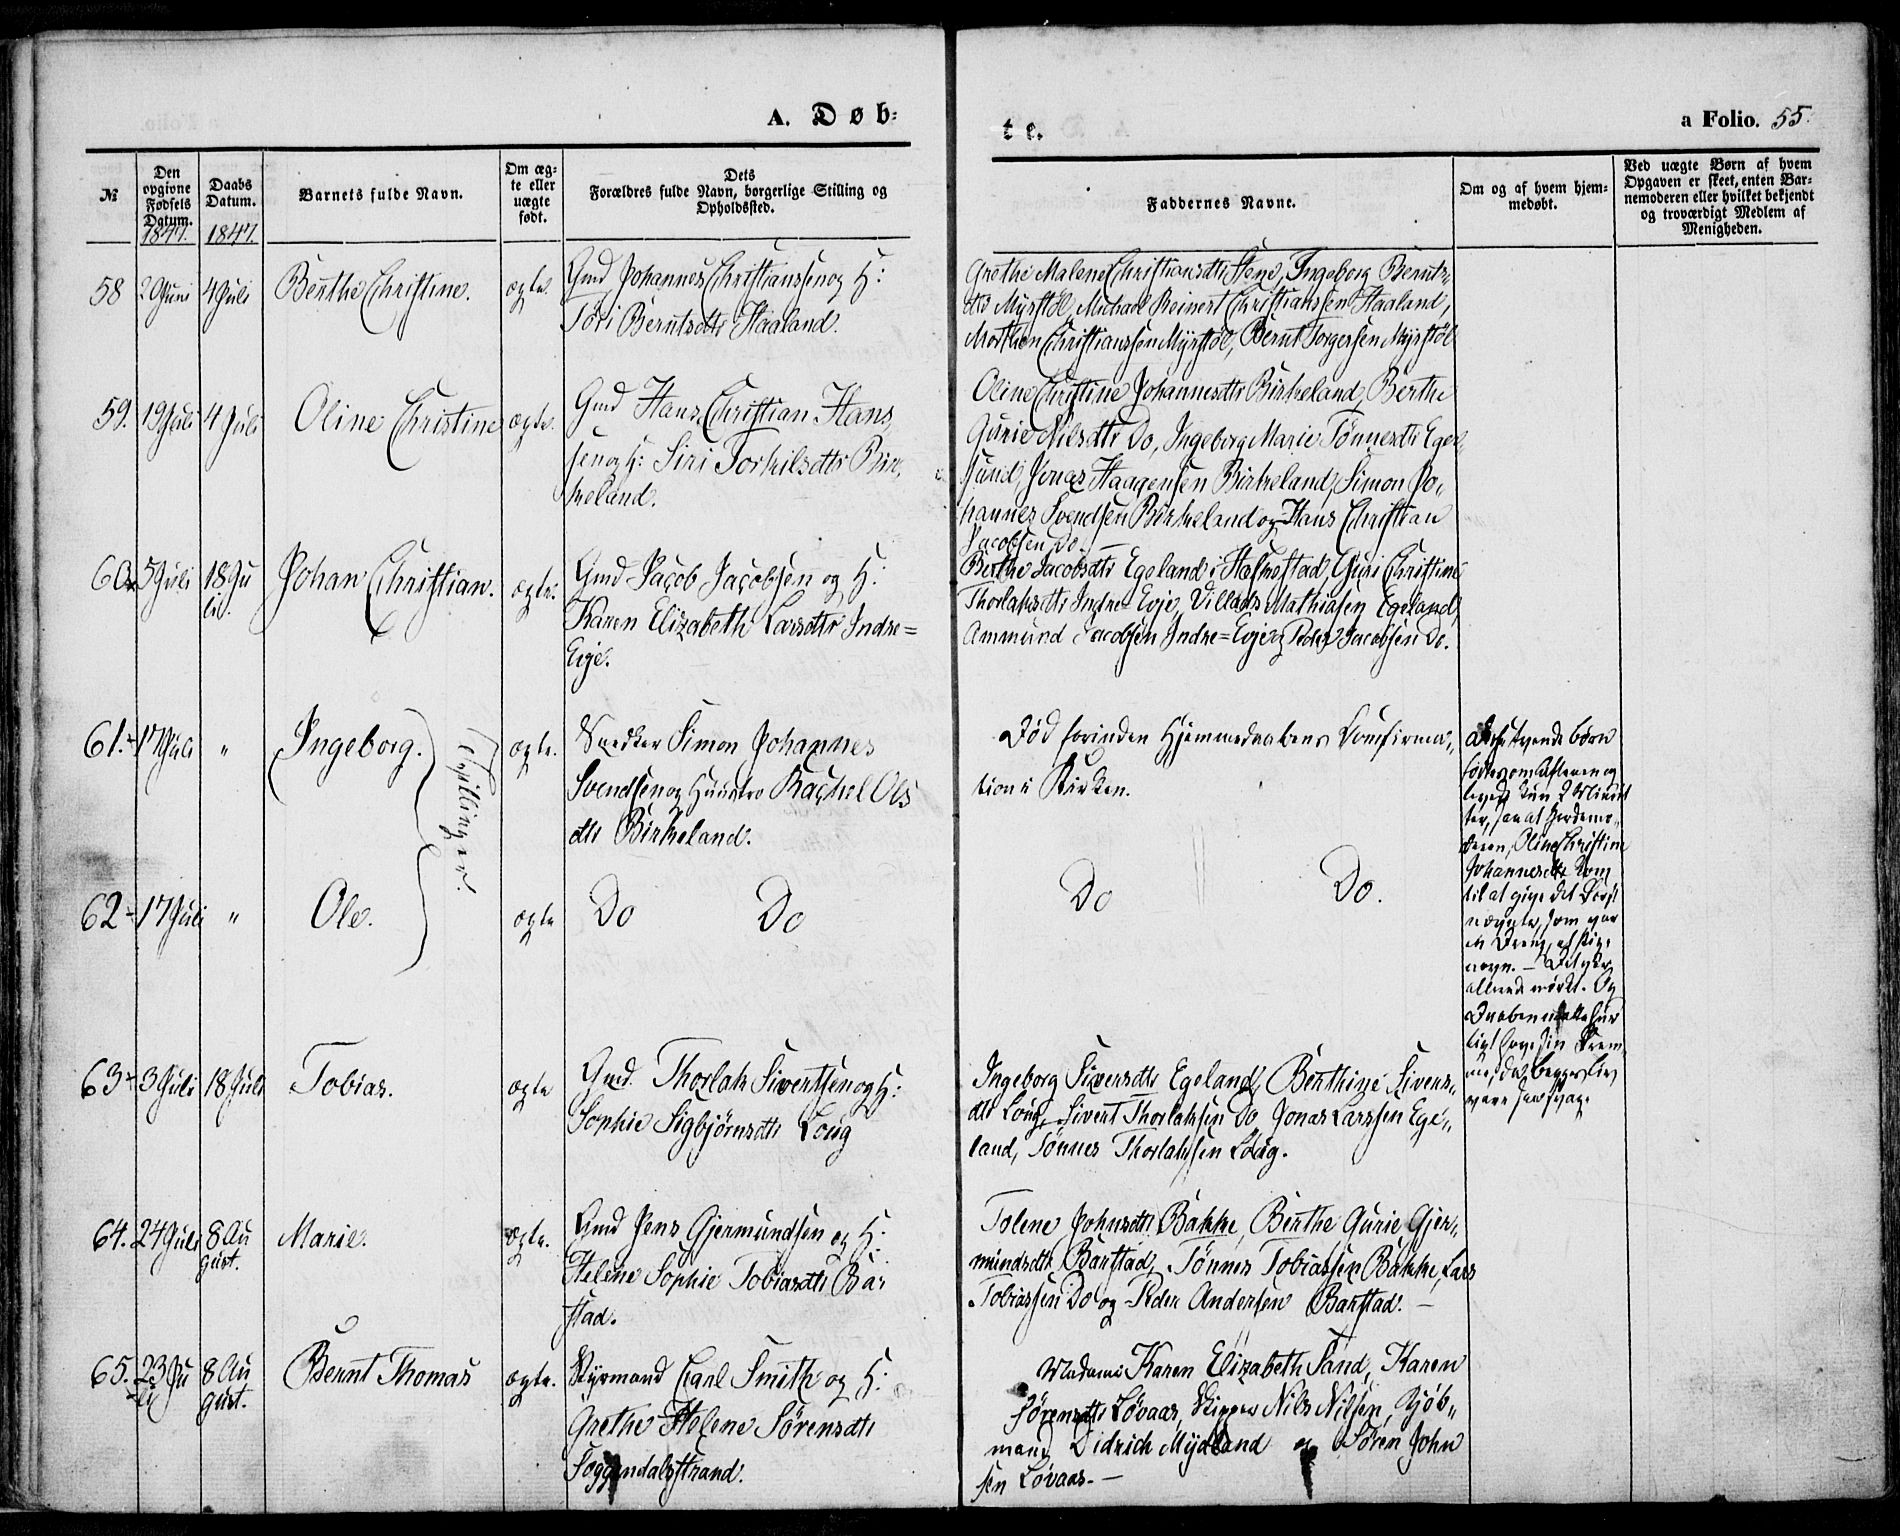 A. Døb=
te.
a Folio. 55.
№
Den opgivne Fødsels Datum. 1847.
Daabs Datum. 1847.
Barnets fulde Navn.
Om ægte eller uægte født.
Dets Forældres fulde Navn, borgerlige Stilling og Opholdssted.
Faddernes Navne.
Om og af hvem hjemmedøbt.
Ved uægte Børn af hvem Opgaven er skeet, enten Barnemoderen eller hvilket bekjendt og troværdigt Medlem af Menigheden.
58 2 Juni 4 Juli Berthe Christine. ægte.
Gmd Johannes Christianssen og H:
Tori Berntsdtr Haaland.
Grethe Malene Christiansdtr Stene, Ingeborg Bernts=
dtr Myrstøl, Michael Reinert Christianssen Haaland,
Morthen Christianssen Myrstøl, Bernt Torgersen Myrstøl
59. 1 Juli 4 Juli Oline Christine ægte.
Gmd Hans Christian Hans
sen og H: Siri Torkilsdtr Bir,
keland.
Oline Christine Johannesdtr Birkeland, Berthe
Gurie Nilsdtr Do, Ingeborg Marie Tønnesdtr Eger
sund, Jonas Haagensen Birkeland, Simon Jo,,
hannes Svendsen Birkeland og Hans Christian
Jacobsen Do. —
60. 5 Juli 18 Ju
li. Johan Christian. ægte.
Gmd Jacob Jacobsen og H:
Karen Elizabeth Larsdtr Indre=
Evje.
Berthe Jacobsdtr Egeland i Hellestad, Guri Christine
Thorlaksdtr Indre=Evje, Villads Mathiasen Egeland,
Ammund Jacobsen Indre=Evje og Peder Jacobsen Do.
61. 17 Juli " Ingeborg. ægte.
Tvillinger.
Snedker Simon Johannes
Svendsen og Huustro Rachel Ols
dtr Birkeland.
Død forinden Hjemmedaabens Confirma,,
tion i Kirken.
Disse tvende Børn
fødtes om Aftenen og
levede kun 2 Minut
ter, saa at Jordemo,,
deren, Oline Christine
Johannesdtr kom
til at give det Først
nævnte, som var
en Dreng, et Pige
navn. —
allerede mørkt. Og
Daaben maatte hur
tigt have sin Frem
me, da begges Liv
vare saa svage.
62 17 Juli " Ole. ægte Do Do Do Do.
63 3 Juli 18 Juli Tobias. ægte
Gmd. Thorlak Sivertsen og H:
Sophie Sigbjørnsdtr Loug
Ingeborg Siversdtr Egeland, Berthine Sivers,,
dtr Loug, Sivert Thorlaksen Do, Jonas Larssen Ege,,
land, Tønnes Thorlaksen Loug.
64. 24 Juli 8 Au
gust. Marie. ægte.
Gmd Jens Gjermundsen og H:
Helene Sophie Tobiasdtr Bar
stad.
Tolene Johnsdtr Bakke, Berthe Gurie Gjer,,
mundsdtr Barstad, Tønnes Tobiassen Bakke, Lars
Tobiassen Do og Peder Andersen Barstad. —
65. 23 Ju
li 8 Au
gust. Bernt Thomas ægte.
Styrmand Carl Smith og H:
Grethe Helene Sørensdtr
Soggendalsstrand.
Madame Karen Elizabeth Sand, Karen
Sørensdtr Løvaas, Skipper Nils Nilsen, Kjøb,,
mand Didrich Mydland og Søren John
sen Løvaas. —